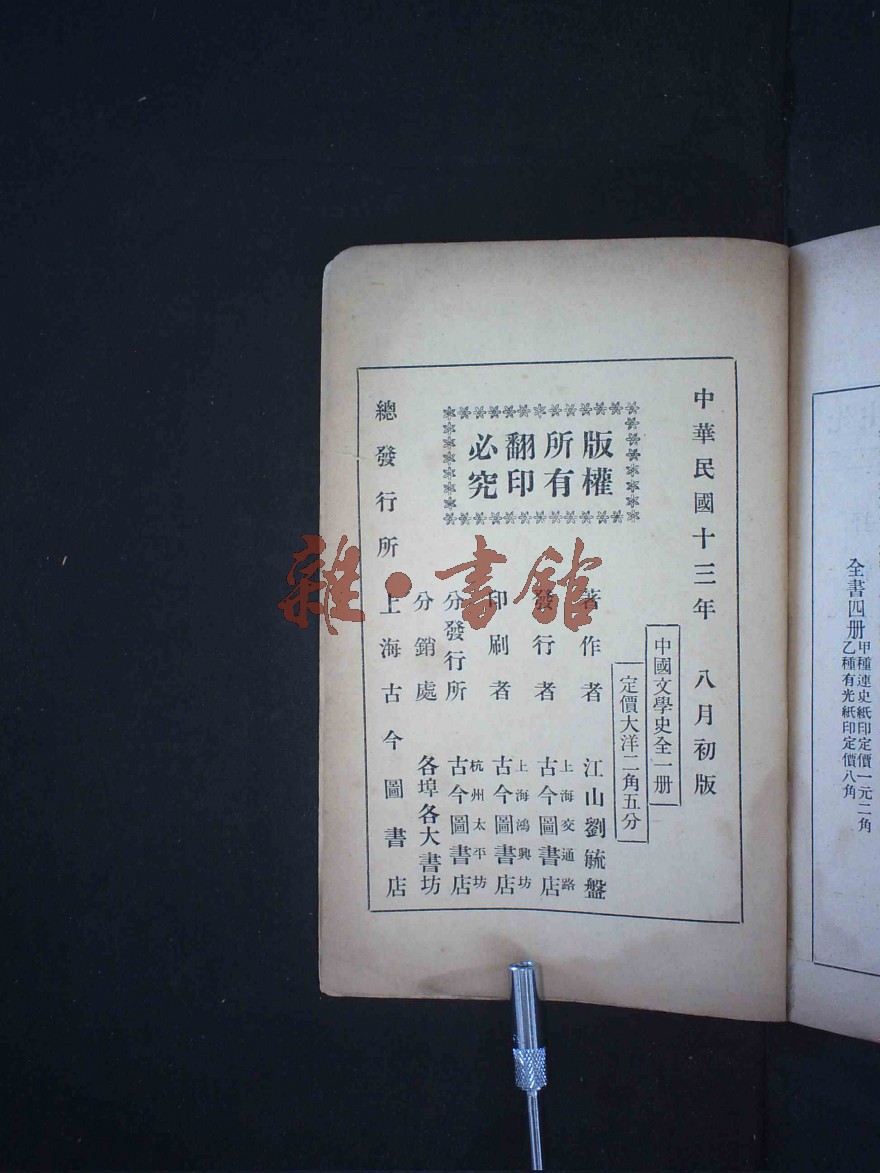 全書四册
甲種連史紙印定價一元二角
乙種有光紙印定價八角
中華民國十三年 八月初版
中國文學史全一册
定價大洋二角五分
版權
所有
翻印
必究
著作者 江山劉毓盤
發行者 上海交通路
古今圖書店
印刷者 上海鴻興坊
古今圖書店
分發行所 杭州太平坊
古今圖書店
分銷處 各埠各大書坊
總發行所 上海古今圖書店
雜·書館